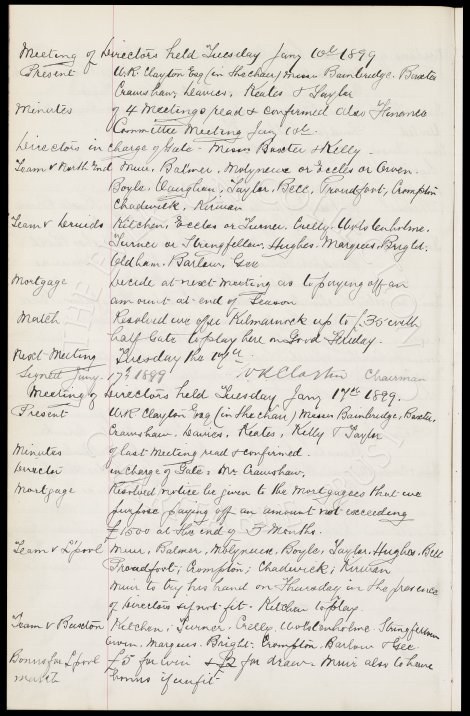 Meeting of Directors held Tuesday Jany 10th 1899
Present W.R. Clayton Esq (in the chair) Messrs Bainbridge, Baxter
Crawshaw, Davies, Keates & Taylor
Minutes of 4 Meetings read & confirmed also Finance
Committee Meeting Jany 10th.
Directors in charge of Gate - Messrs Baxter & Kelly.
Team v North End Muir, Balmer, Molyneux or Eccles or Owen.
Boyle, Vaughan, Taylor, Bell, Proudfoot, Crompton
Chadwick, Kirwan
Team v Druids Kitchen, Eccles or Turner, Crelly, Wolstenholme.
Turner or Stringfellow, Hughes, Marques, Bright.
Oldham. Barlow, Gee
Mortgage Decide at next meeting as to paying off an
amount at end of Season
Match Resolved we offer Kilmarnock up to £30 with
half Gate to play here on Good Friday.
Next Meeting Tuesday the 17th.
Signed Jany 17th 1899 W R Clayton Chairman
Meeting of Directors held Tuesday Jany 17th 1899.
Present W.R. Clayton Esq (in the chair) Messrs Bainbridge, Baxter,
Crawshaw, Davies, Keates, Kelly & Taylor
Minutes of last Meeting read & confirmed.
Director in charge of Gate, Mr Crawshaw.
Mortgage Resolved notice be given to the Mortgagees that we
purpose paying off an amount not exceeding
£1500 at the end of 3 Months.
Team v L'pool Muir, Balmer, Molyneux, Boyle, Taylor, Hughes, Bell
Proudfoot; Crompton; Chadwick; Kirwan
Muir to try his hand on Thursday in the presence
of Directors if not fit - Kitchen to play.
Team v Buxton Kitchen; Turner. Crelly. Wolstenholme. Stringfellow
Owen. Marques. Bright. Crompton. Barlow & Gee
Bonus for L'pool £5 for win & £2 for draw - Muir also to have
match bonus if unfit